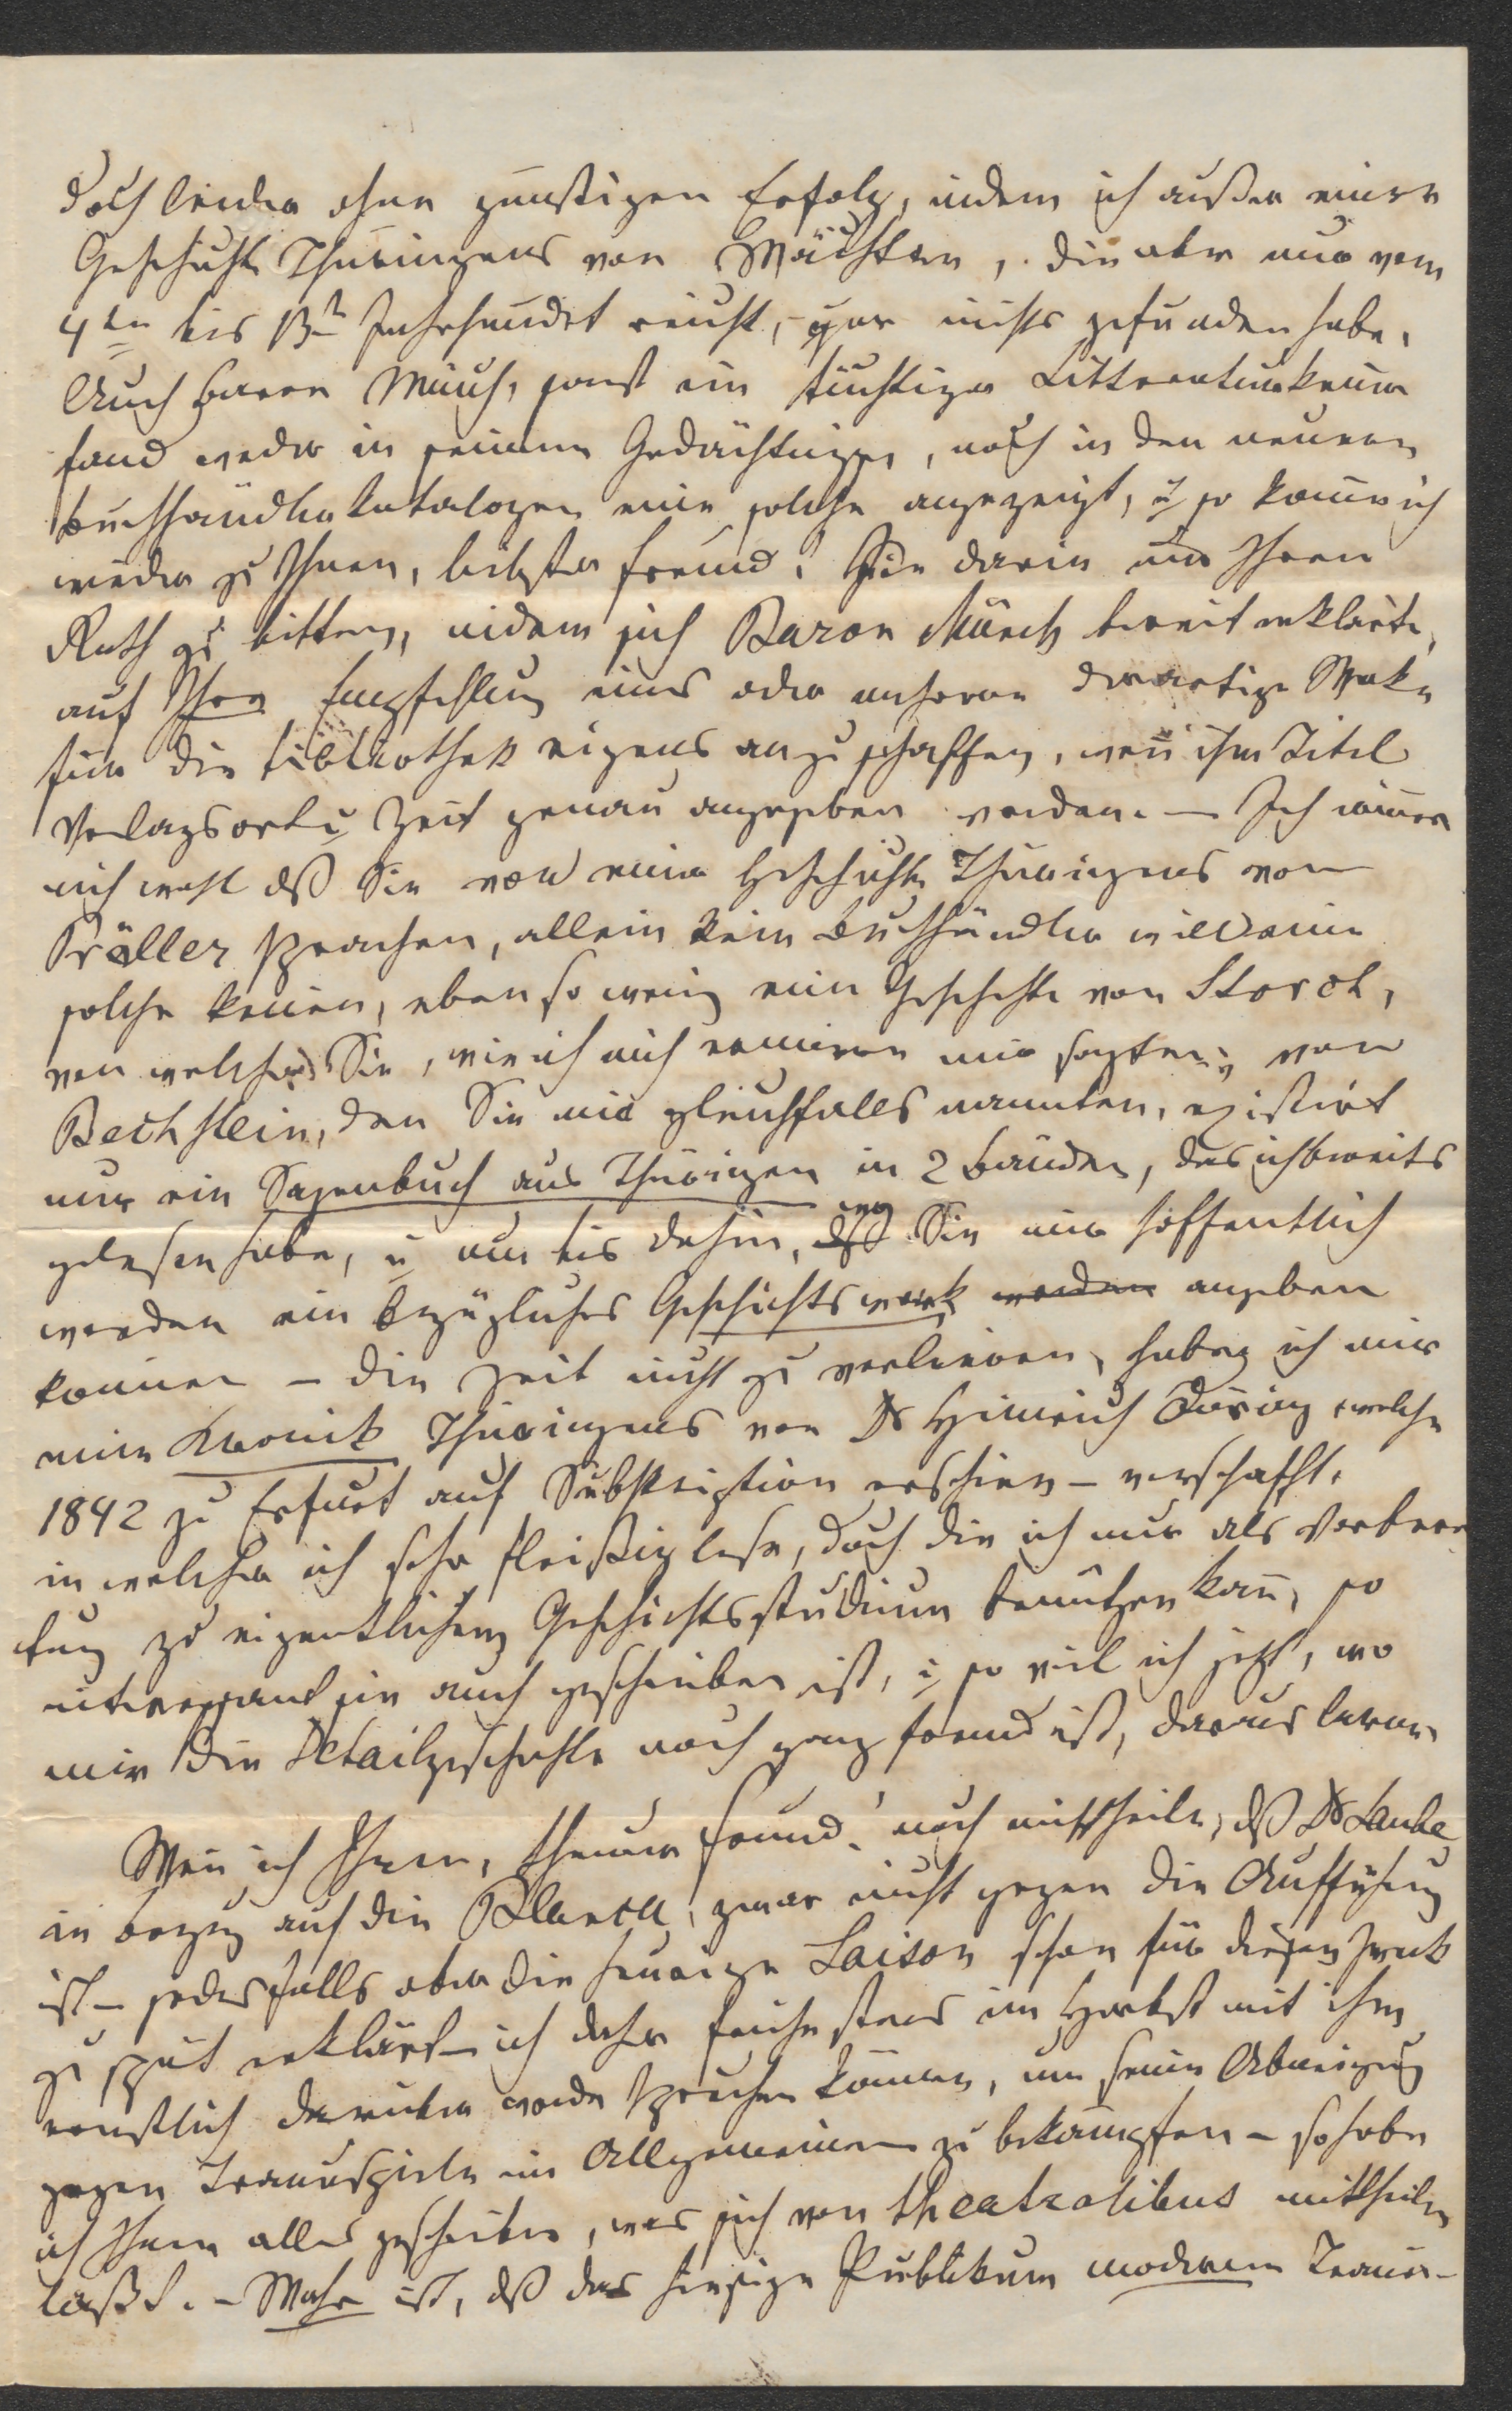 doch leider ohne günstigen Erfolg, indem ich außer einer
Geschichte Thüringens von Wächter, die aber nur vom
4ten bis 13t Jahrhundert reicht, – gar nichts gefunden habe.
Auch Baron Münch, sonst ein tüchtiger Litteraturkenner
fand weder in seinem Gedächtnisse, noch in den neueren
Buchhändlerkatalogen eine solche angezeigt, u so komme ich
wieder zu Ihnen, liebster Freund! Sie darin um Ihren
Rath zu bitten, indem sich Baron Münch bereit erklärte,
auf Ihre Empfehlung eines oder mehrere derartige Werke
für die Bibliothek eigens anzuschaffen, wen̄ ihm Titel
Verlagsort u Zeit genau angegeben werden. — Ich erinnere
mich wohl dß Sie von einer Geschichte Thüringens von
Kräller sprachen, allein kein Buchhändler will eine
solche kennen, eben so wenig eine Geschichte von Storch,
von welcher Sie, wie ich mich erinnere mir sagten; von
Bechstein, den Sie mir gleichfalls nannten, existirt
nur ein Sagenbuch aus Thüringen in 2 Bänden, das ich bereits
gelesen habe, u um bis dahin, wo Sie mir hoffentlich
werden ein bezügliches Geschichtswerk angeben
können – die Zeit nicht zu verlieren, habe ich mir
eine Kronik Thüringens von Dr Heinrich Döring welche
1842 zu Erfurt auf Subskription erschien – verschafft,
in welcher ich sehr fleißig lese, doch die ich nur als Vorberei
tung zu eigentlichem Geschichtsstudium benützen kan̄, so
interessant sie auch geschrieben ist, u so viel ich jetzt, wo
mir die Detailgeschichte noch ganz fremd ist, daraus lerne.
Wen̄ ich Ihnen, theurer Freund! noch mittheile, dß Dr Laube
in bezug auf die Blanca, zwar nicht gegen die Aufführung
ist – jedesfalls aber die heurige Saison schon für diesen Zweck
zu spät erklärt – ich daher frühestens im Herbst mit ihm
ernstlich darüber werde sprechen können, um seine Abneigung
gegen Trauerspiele im Allgemeinen zu bekämpfen – so habe
ich Ihnen alles geschrieben, was sich von theatralibus mittheilen
läßt. – Wahr ist, dß das hiesige Publikum modernen Trauer-